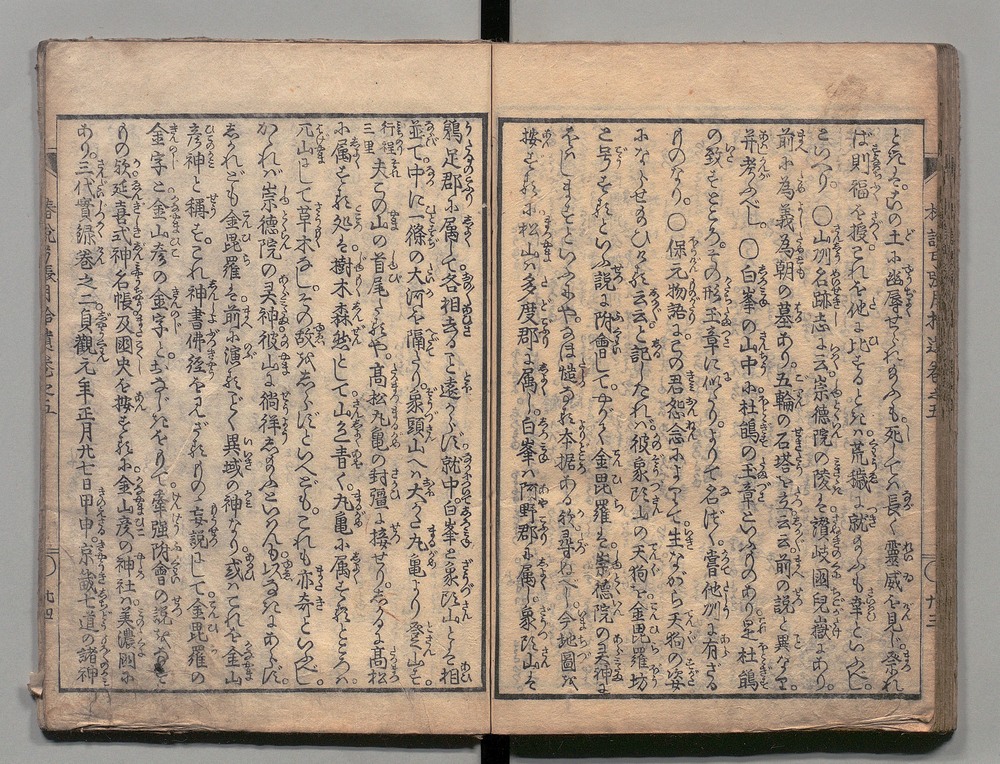 この土に幽辱せられ給ふも。死しては長く靈威を見し。祭れ
ば則福を授これを他に比するときは荒穢に就給ふも幸といふべし
といへり。〇山州名跡志に云崇德院の陵は讃岐國兒嶽にあり
前に為義為朝の墓あり。五輪の石塔を立云云前の説と異なり。
并考ふべし。〇白峯の山中に杜鵑の玉章といふものあり是杜鵑
の致すところ。その形玉章に似たり。よりて名づく。嘗他州に有ざる
ものなり。〇保元物語にこの君怨念によりて。生ながら天狗の姿
にならせ給ひける云云と記したれば彼象頭山の天狗を金毘羅坊
と号するといふ説に附會して。なべて金毘羅は崇德院の灵神に
をはしますといふにや。なほ慥なる本据ある歟尋ぬべし。今地圖を
按ずるに松山は多度郡に属し。白峯は阿野郡に属し。象頭山は
鵜足郡に属して各相去ること遠からず。就中白峯と象頭山とは相
並て。中に一條の大河を隔たり。象頭山へは大かた丸亀より登山す。
行程三里
夫この山の首尾たるや。高松丸亀の封彊に接せり。しかるに高松
に属する処は樹木森然として山色青く丸亀に属するところは
兀山にして草木なし。その故をしらずといへども。これも亦奇といふべし。
かゝれば崇德院の灵神彼山に徜徉し給ふといはんも以あるにあらず。
しかれども金毘羅は前に演るごとく異域の神なり。或はこれを金山
彦神と称す。これ神書佛経を見ざるものゝ妄説にして金毘羅の
金字と金山彦の金字と おなじきをもて牽強附會の説をなせし
もの歟延喜式神名帳及國史を按するに。金山彦の神社は美濃國に
あり。三代實録巻之二貞觀元年正月廿七日甲申。京畿七道の諸神
廿三
廿四